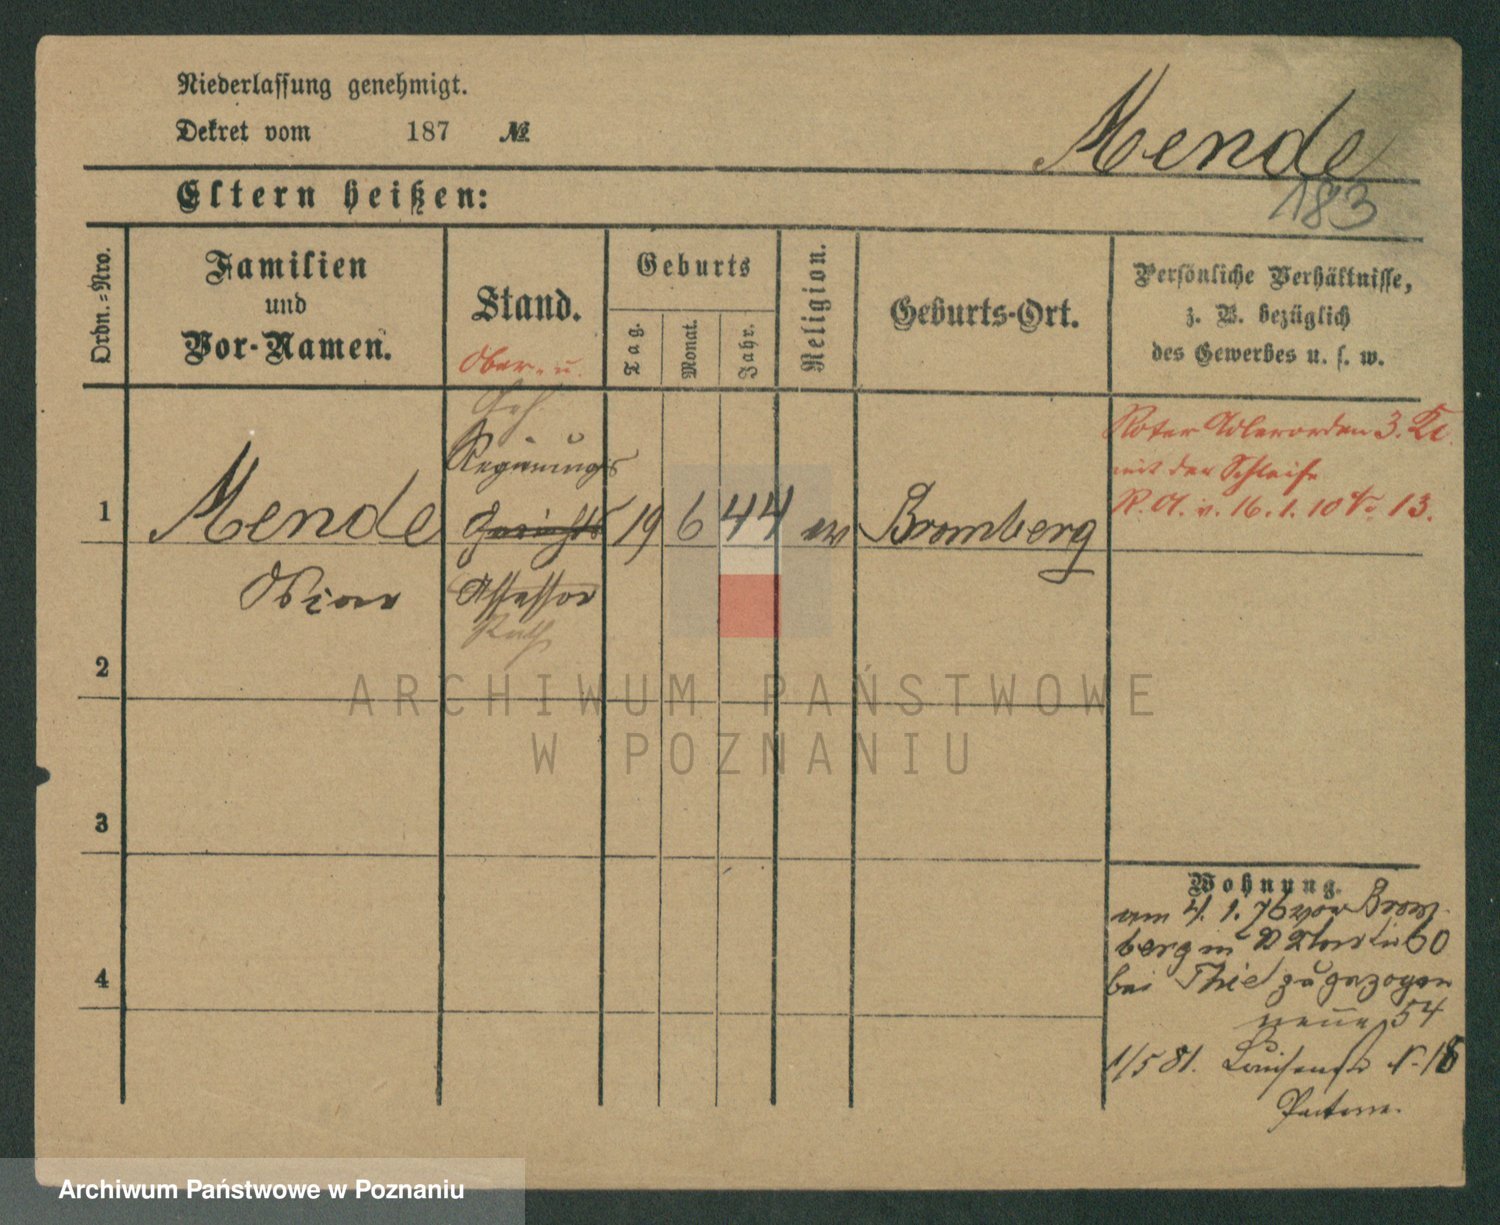 Niederlassung genehmigt.
Dekret vom 187 №
Mende
183
Eltern heißen:
Ordn.-Nro.
Familien
und
Vor-Namen.
Stand.
Geburts
Tag.
Monat.
Jahr.
Religion.
Geburts-Ort.
Persönliche Verhältnisse,
z. B. bezüglich
des Gewerbes u. s. w.
Ober- u.
Geh
Regierungs
1 Mende Gerichts 19 6 44 ev Bromberg
Assessor
Rath
Roter Adlerorden 3. Kl.
mit der Schleife
R. A. v. 16. 1. 10
13.
2
3
4
Wohnung.
am 4. 1. 76 von Brom-
berg in 60
bei Thiel zugezogen
neue 54
1/5 81. Louisenstr N. 18
ARCHIWUM PAŃSTWOWE
W POZNANIU
Archiwum Państwowe w Poznaniu